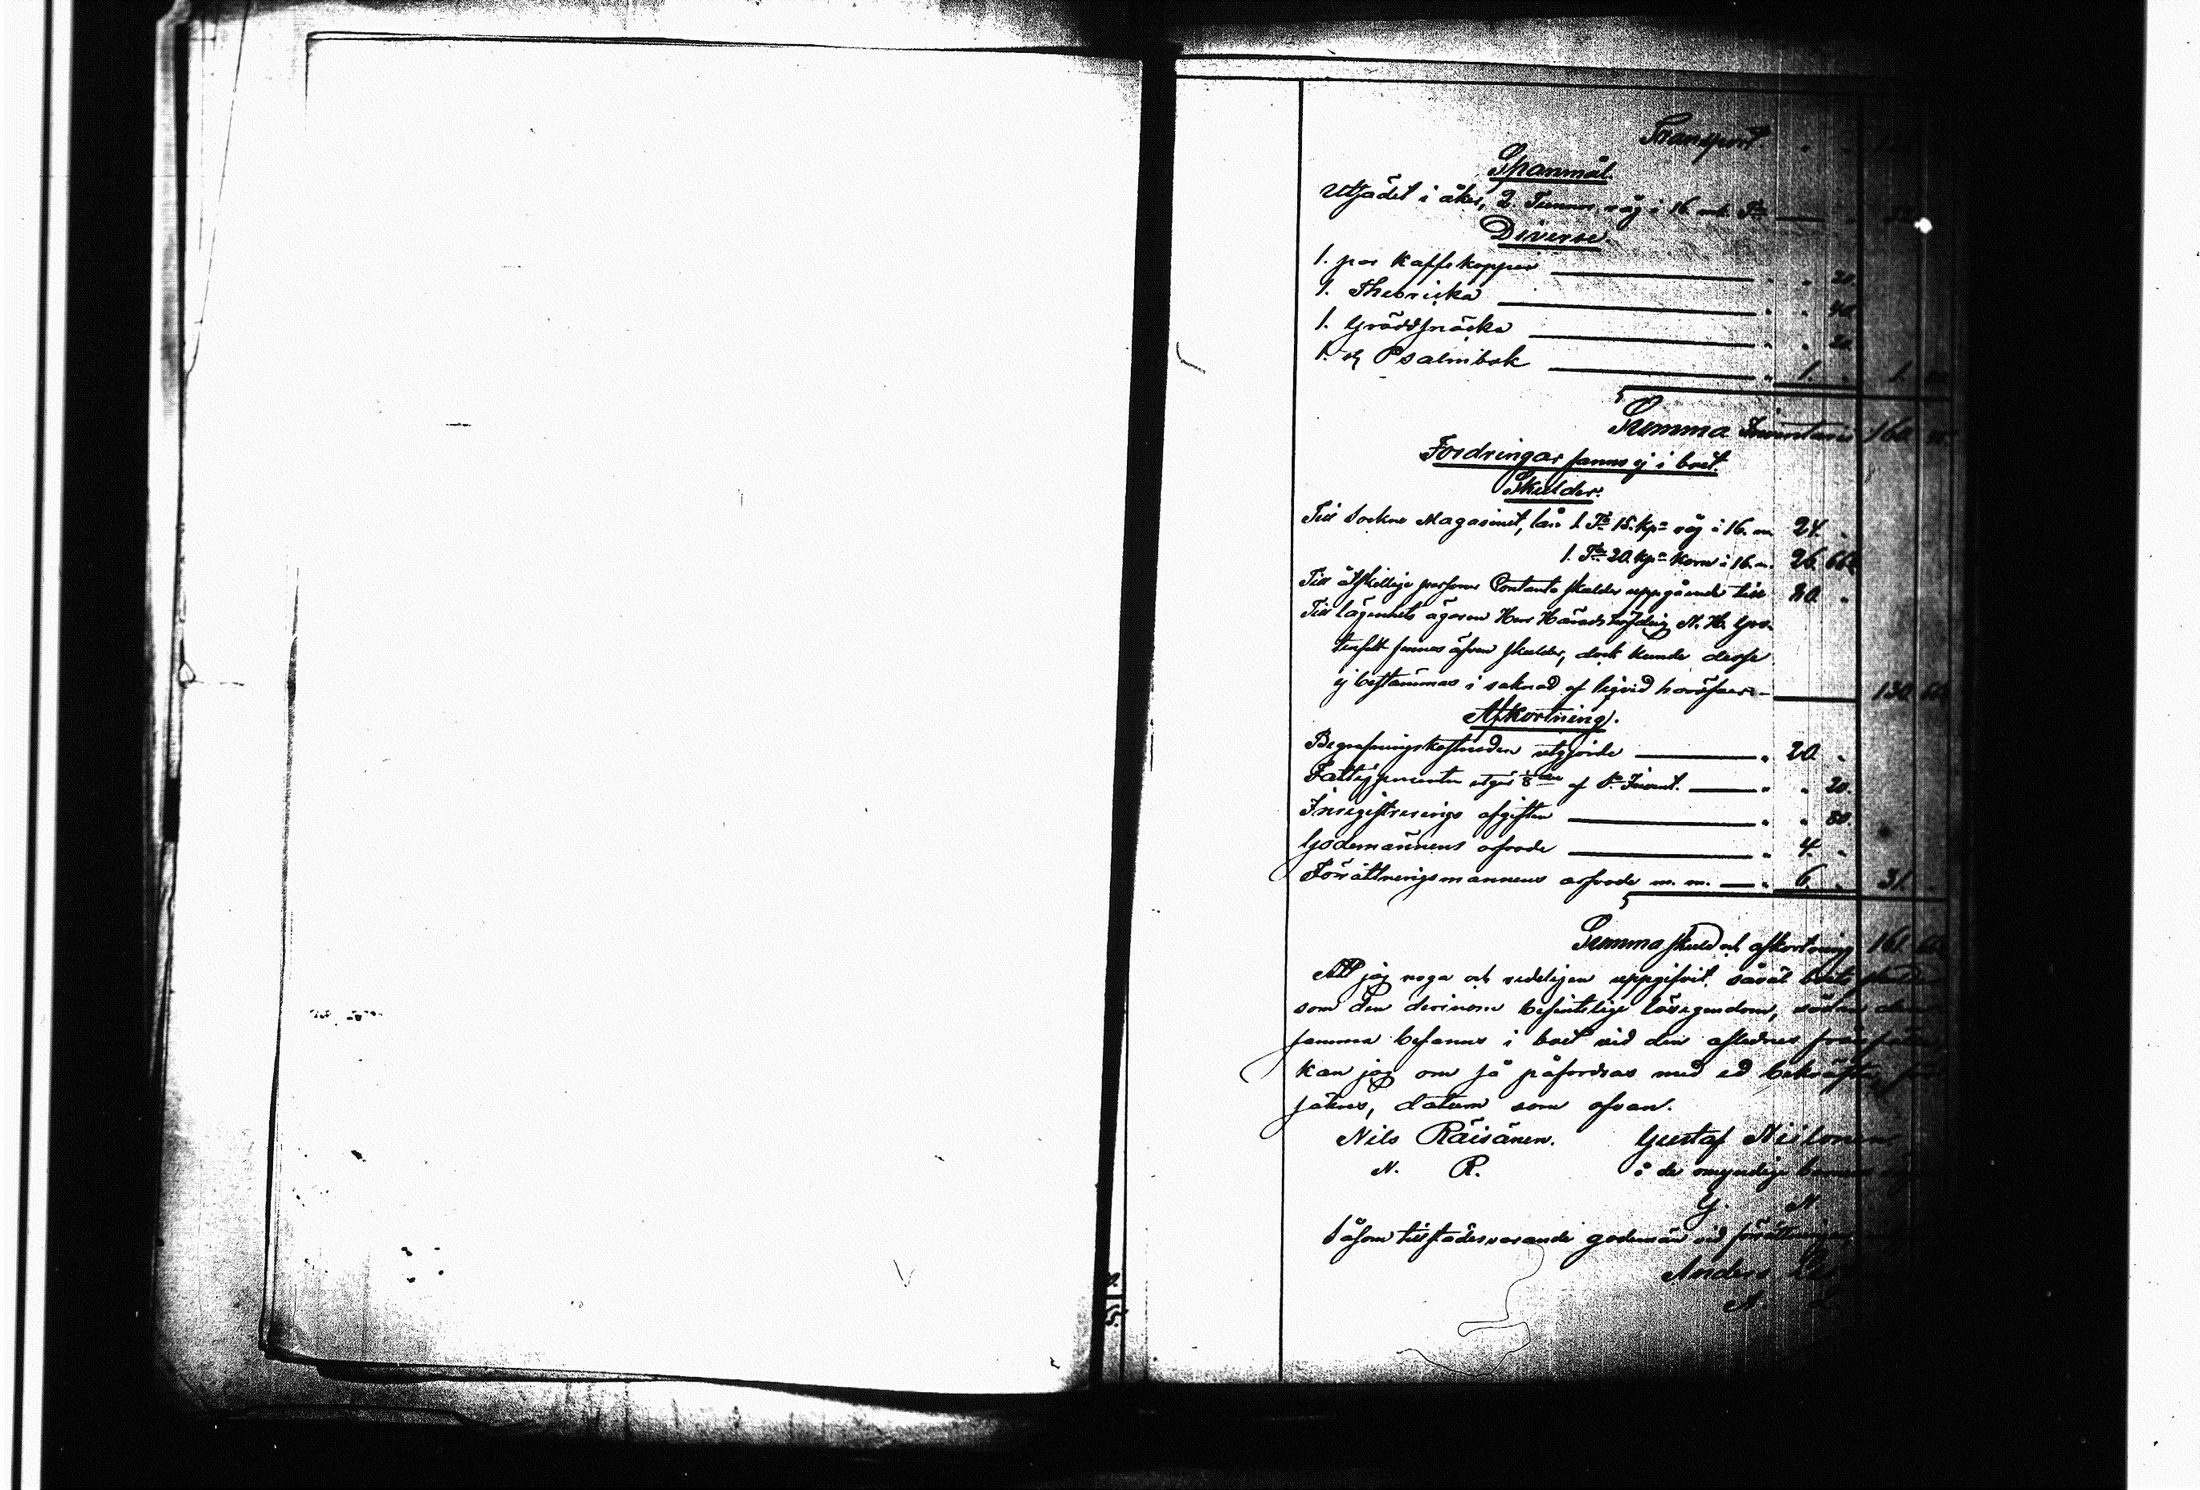 Transport " "
Spanmål.
Utsådet i åker, 2. Tunnor råg i 16 mk Tn "
Diverse.
1. par Kaffekoppar " " 20.
1. Thebricka " " 40.
1. Gräddsnäcka " " 20.
1. st Psalmbok " 1. " 1.
Summa Inventarii 160.
Fordringar fanns ej i boet.
Skulder.
Till Sockne Magasinet, lån 1. Tn 15. kpr råg i 16. m. 24. "
1. Tn 20. kpr Korn i 16. m. 26. 66
Till åtskillige personer Contanta skulder uppgående till 80. "
Till lägenhets ägaren Herr Häradshöfding N. H.
finnes äfven skulder, dock kunde desse
ej bestämmas i saknad af liqvid 130. 66
Afkortning.
Begrafningskostnaden utgjorde " 20. "
Fattigprocenten utgör 1/8 af Sa Invent. " " 20.
Inregistrerings afgiften " " 80.
Godemännens arfvode " 4. "
Förrättningsmannens arfvode m. m. " 6. " 31. "
Summa skuld och afkortning 161. 66
Att jag noga och redeligen uppgifvit såväl boets skulder
som den derinom befintelige lösegendom, sådan den
samma befanns i boet vid den aflednes frånfälle,
kan jag om så påfordras med ed bekräfta,
datum som ofvan.
Nils Räisänen. Gustaf Niilonen
N. R. å de omyndige barnens
G. N.
Såsom tillstädesvarande godemän vid förrättningen
Anders
A. L.